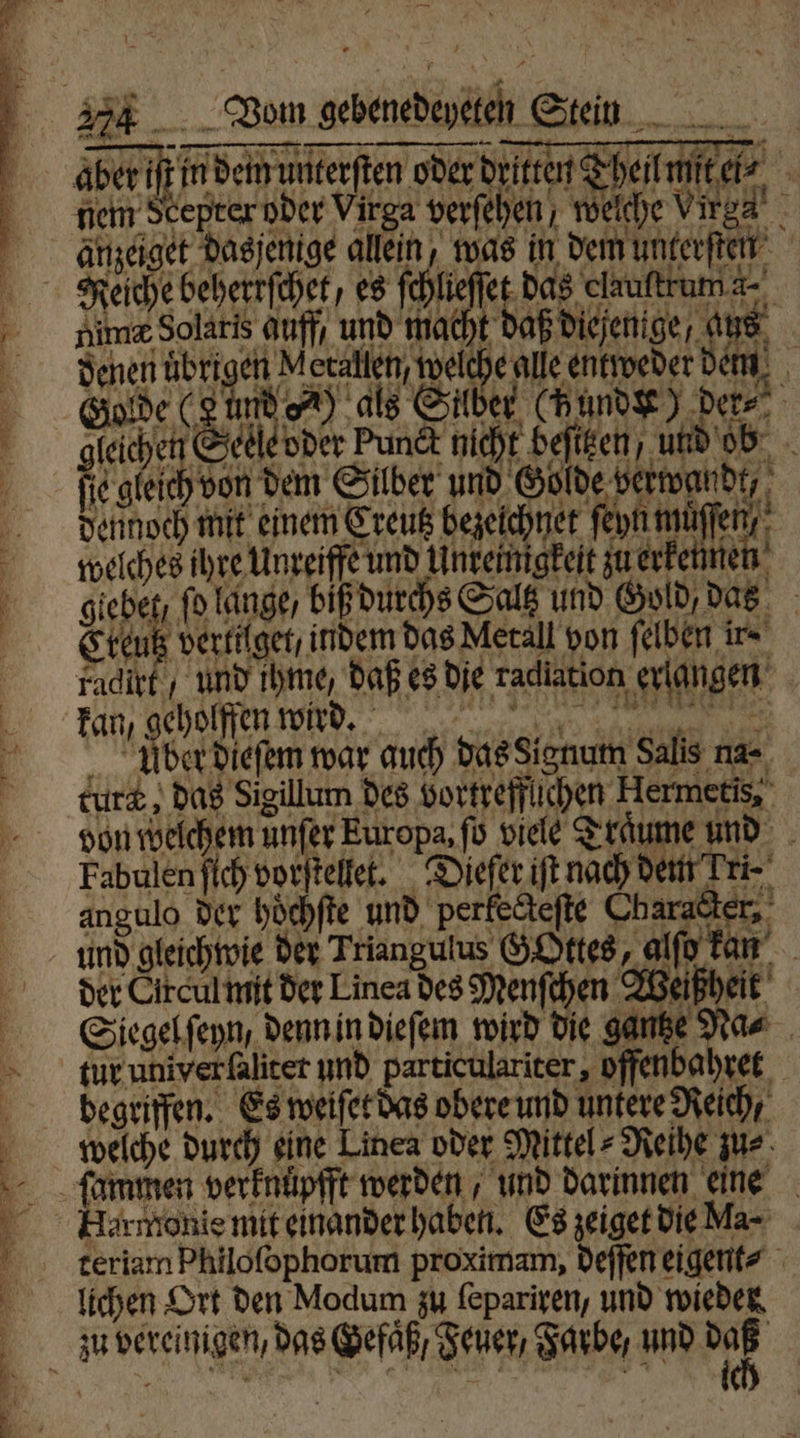 274 Vom gebenedeyeten Stein
aber iſt in dem unterſten oder dritten Theil mit ei⸗
nem Scepter oder Virga verſehen, welche Virga
anzeiget dasjenige allein, was in dem unterſten
Reiche beherrſchet, es ſchlieſſet das clauſtrum a-
nimæ Solaris auff, und macht daß diejenige, aus
denen uͤbrigen Metallen, welche alle entweder dem
Golde (♀ und ♂) als Silber (♄ und ☿) der⸗
gleichen Seele oder Punct nicht beſitzen, und ob
ſie gleich von dem Silber und Golde verwandt,
dennoch mit einem Creutz bezeichnet ſeyn muͤſſen,
welches ihre Unreiffe und Unreinigkeit zu erkennen
giebet, ſo lange, biß durchs Saltz und Gold, das
Creutz vertilget, indem das Metall von ſelben ir-
radirt, und ihme, daß es die radiation erlangen
kan, geholffen wird.
Uber dieſem war auch das Signum Salis na-
turæ, das Sigillum des vortrefflichen Hermetis,
von welchem unſer Europa, ſo viele Traͤume und
Fabulen ſich vorſtellet. Dieſer iſt nach dem Tri-
angulo der hoͤchſte und perfecteſte Character,
und gleichwie der Triangulus GOttes, alſo kan
der Circul mit der Linea des Menſchen Weißheit
Siegel ſeyn, denn in dieſem wird die gantze Na⸗
tur univerſaliter und particulariter, offenbahret
begriffen. Es weiſet das obere und untere Reich,
welche durch eine Linea oder Mittel⸗Reihe zu⸗
ſammen verknuͤpfft werden, und darinnen eine
Harmonie mit einander haben. Es zeiget die Ma-
teriam Philoſophorum proximam, deſſen eigent⸗
lichen Ort den Modum zu ſepariren, und wieder
zu vereinigen, das Gefaͤß, Feuer, Farbe, und daß
ich